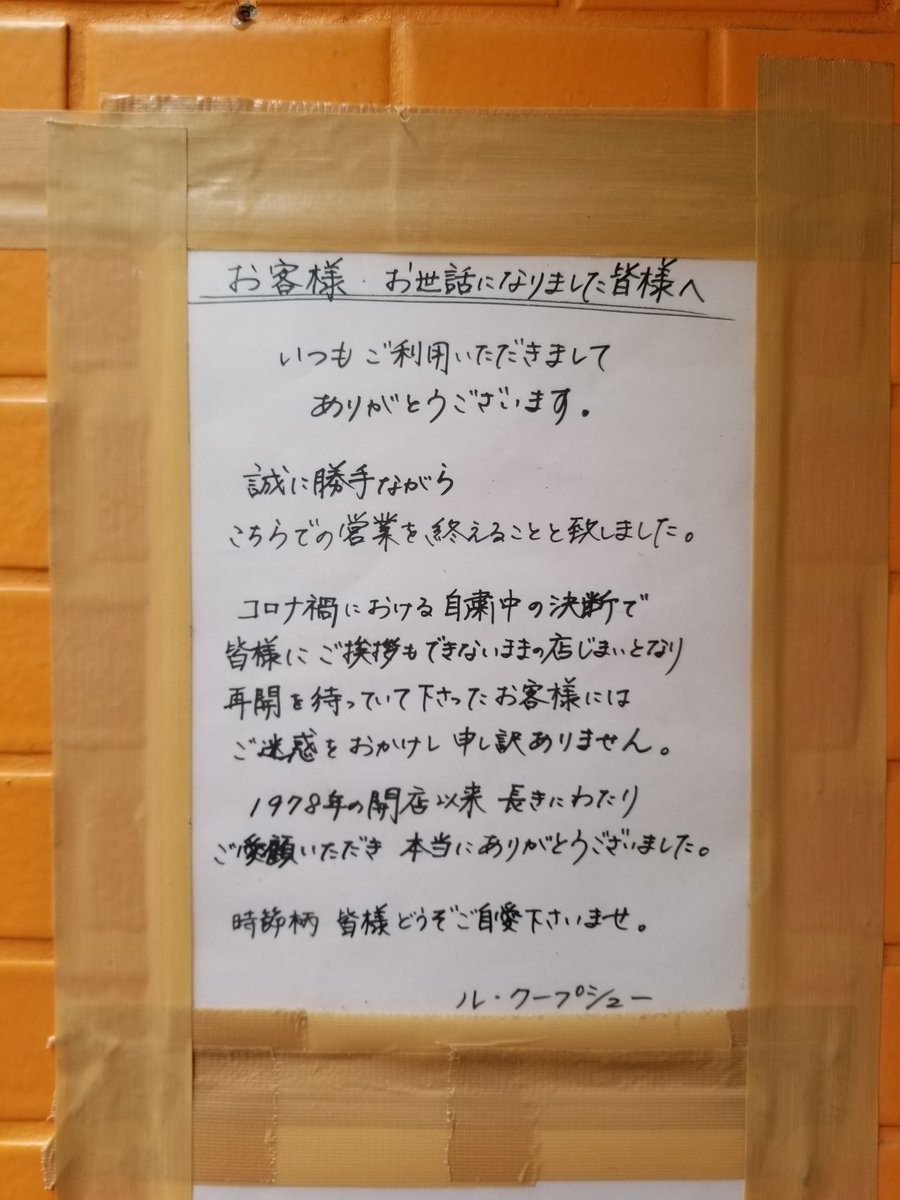 お客様・お世話になりました皆様へ
いつもご利用いただきまして
ありがとうございます。
誠に勝手ながら
こちらでの営業を終えることと致しました。
コロナ禍における自粛中の決断で
皆様にご挨拶もできないままの店じまいとなり
再開を待っていて下さったお客様には
ご迷惑をおかけし申し訳ありません。
1978年の開店以来 長きにわたり
ご愛顧いただき 本当にありがとうございました。
時節柄 皆様どうぞご自愛下さいませ。
ル・クープシュー